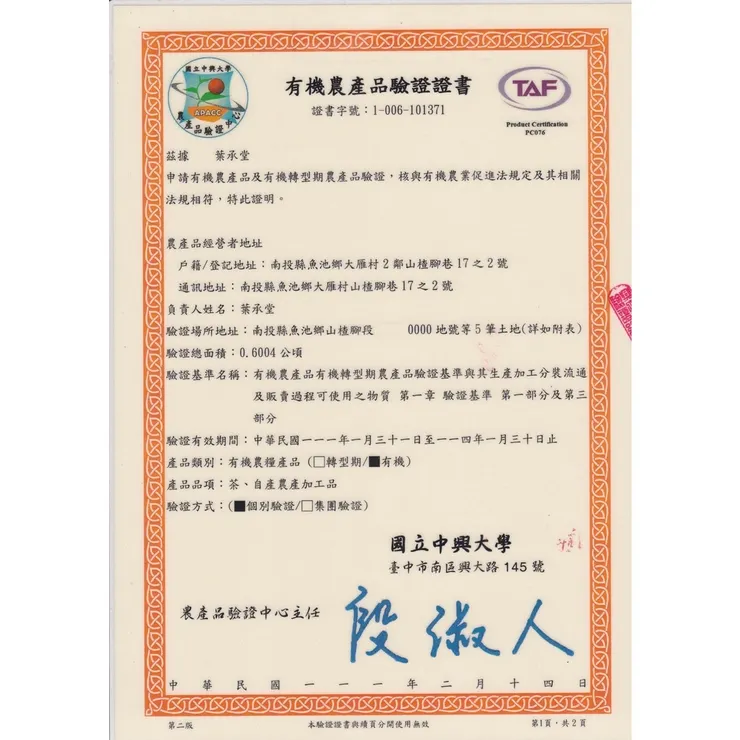 國立中興大學
APACC
農產品驗證中心
有機農產品驗證證書
證書字號：1-006-101371
TAF
Product Certification
PC076
茲據　葉承堂
申請有機農產品及有機轉型期農產品驗證，核與有機農業促進法規定及其相關
法規相符，特此證明。
農產品經營者地址
戶籍/登記地址：南投縣魚池鄉大雁村2鄰山楂腳巷17之2號
通訊地址：南投縣魚池鄉大雁村山楂腳巷17之2號
負責人姓名：葉承堂
驗證場所地址：南投縣魚池鄉山楂腳段　0000地號等5筆土地(詳如附表)
驗證總面積：0.6004公頃
驗證基準名稱：有機農產品有機轉型期農產品驗證基準與其生產加工分裝流通
及販賣過程可使用之物質 第一章 驗證基準 第一部分及第三
部分
驗證有效期間：中華民國一一一年一月三十一日至一一四年一月三十日止
產品類別：有機農糧產品（□轉型期/■有機）
產品品項：茶、自產農產加工品
驗證方式：（■個別驗證/□集團驗證）
國立中興大學
臺中市南區興大路145號
農產品驗證中心主任
段淑人
中華民國一一一年二月十四日
第二版
本驗證證書與續頁分開使用無效
第1頁，共2頁